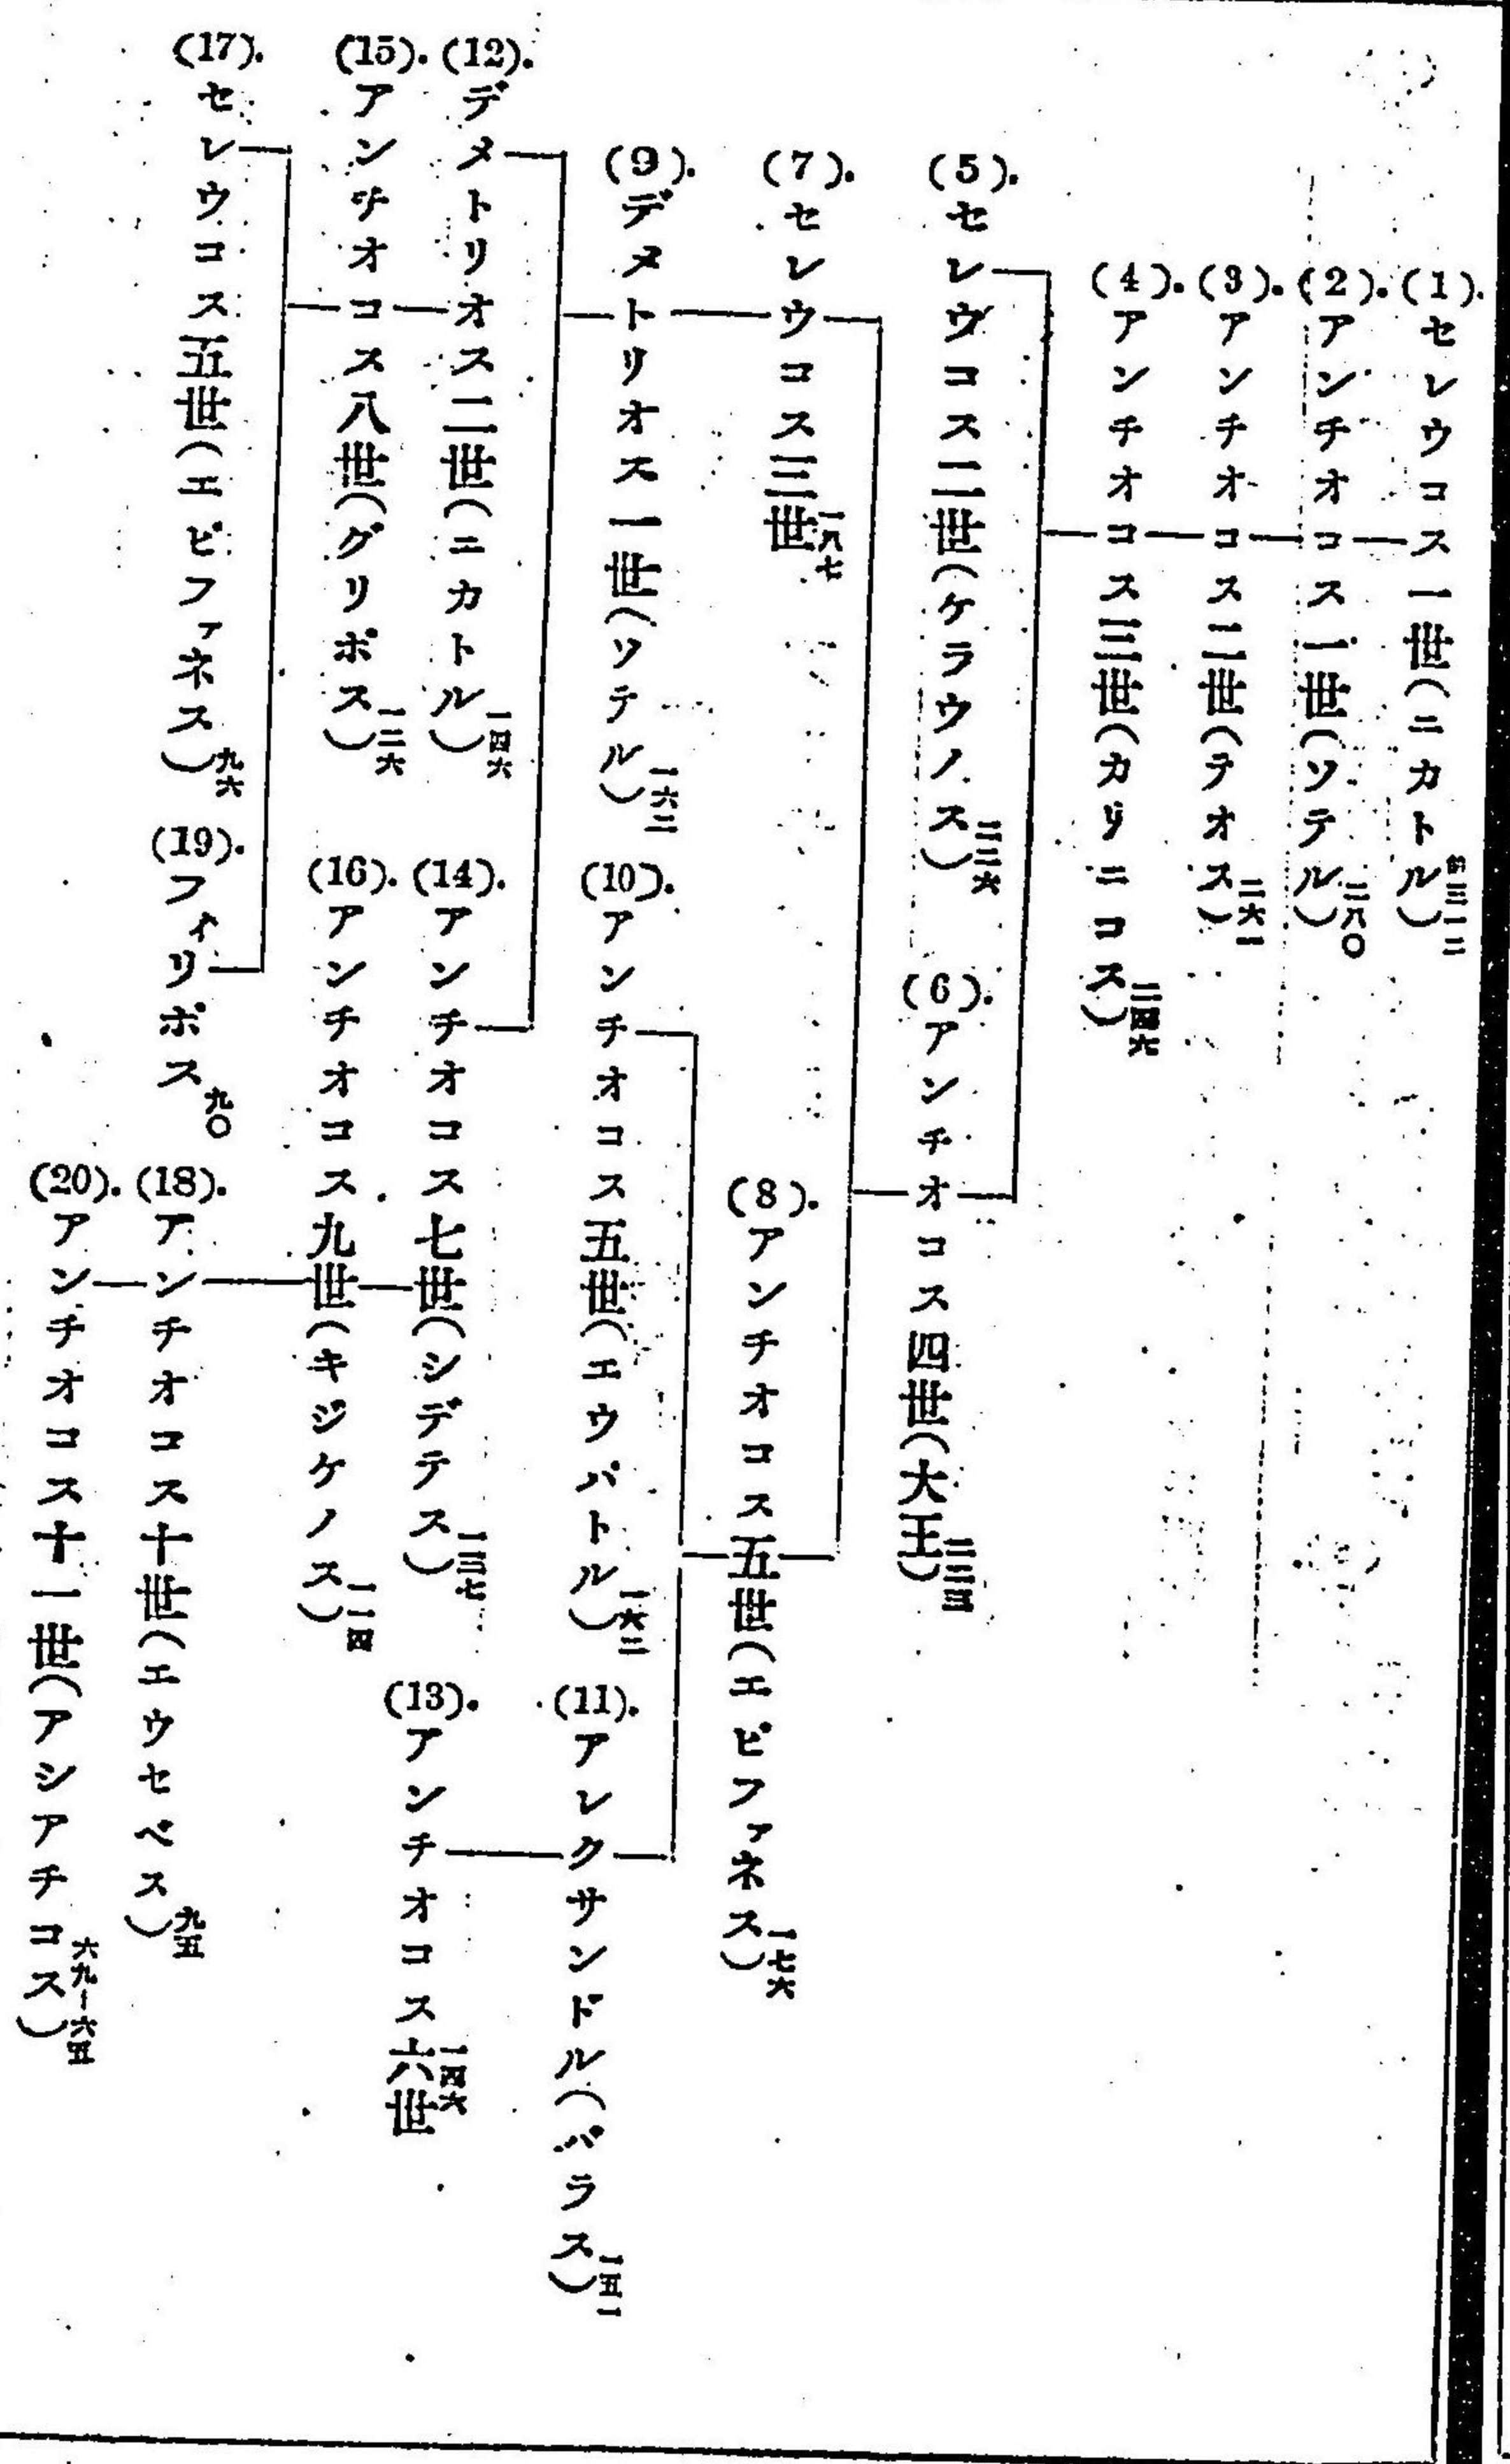 (1). セレウコス一世(ニカトル) 前三一二
(2). アンチオコス一世(ソテル) 二八〇
(3). アンチオコス二世(テオス) 二六一
(4). アンチオコス三世(カリニコス) 二四六
(5). セレウコス二世(ケラウノス) 二二六
(6). アンチオコス四世(大王) 二二三
(7). セレウコス三世 一八七
(8). アンチオコス五世(エピファネス) 一七六
(9). デメトリオス一世(ソテル) 一六二
(10). アンチオコス五世(エウパトル) 一六二
(11). アレクサンドル(バラス) 一五一
(12). デメトリオス二世(ニカトル) 一四六
(14). アンチオコス七世(シデテス) 一三七
(13). アンチオコス六世 一四六
(15). アンチオコス八世(グリポス) 一二六
(16). アンチオコス九世(キジケノス) 一一四
(17). セレウコス五世(エピファネス) 九六
(19). フィリポス 九〇
(18). アンチオコス十世(エウセベス) 九五
(20). アンチオコス十一世(アシアチコス) 六九-六五